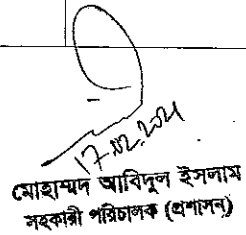 17.02.2021
মোহাম্মদ আবিদুল ইসলাম
সহকারী পরিচালক (প্রশাসন)